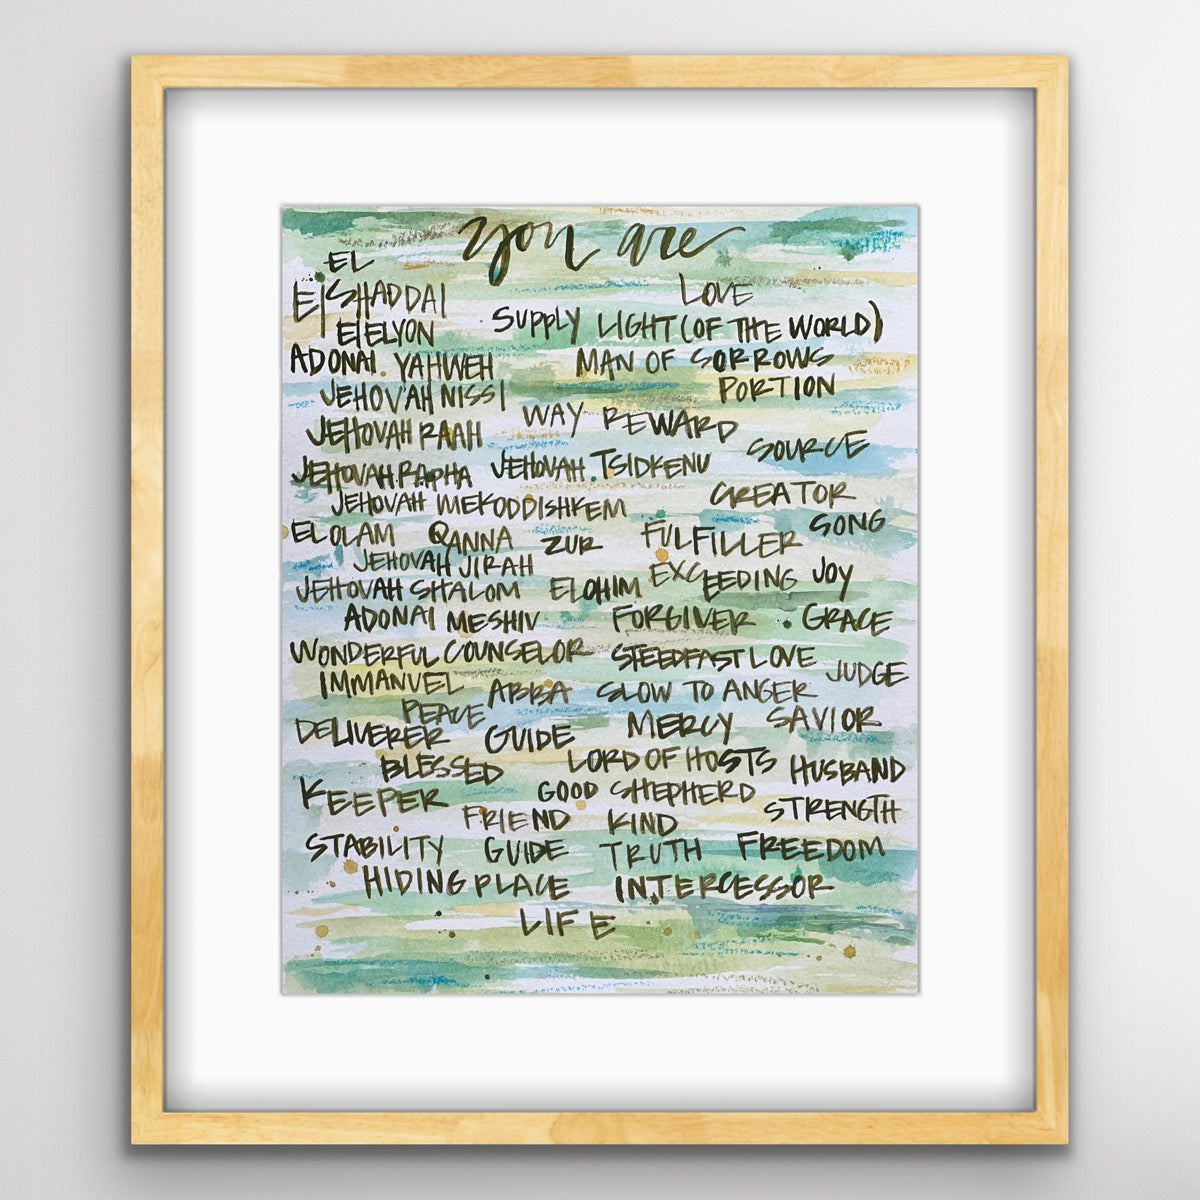 you are
EL
El SHADDAI LOVE
El ELYON SUPPLY LIGHT (OF THE WORLD)
ADONAI. YAHWEH MAN OF SORROWS
JEHOVAH NISSI PORTION
JEHOVAH RAAH WAY REWARD SOURCE
JEHOVAH. RAPHA JEHOVAH. TSIDKENU
JEHOVAH MEKODDISHKEM CREATOR
EL OLAM QANNA ZUR FULFILLER SONG
JEHOVAH JIRAH EXCEEDING JOY
JEHOVAH SHALOM ELOHIM
ADONAI MESHIV FORGIVER GRACE
WONDERFUL COUNSELOR STEEDFAST LOVE JUDGE
IMMANUEL ABBA SLOW TO ANGER
PEACE
DELIVERER GUIDE MERCY SAVIOR
BLESSED LORD OF HOSTS HUSBAND
KEEPER GOOD SHEPHERD
FRIEND KIND STRENGTH
STABILITY GUIDE TRUTH FREEDOM
HIDING PLACE INTERCESSOR
LIFE